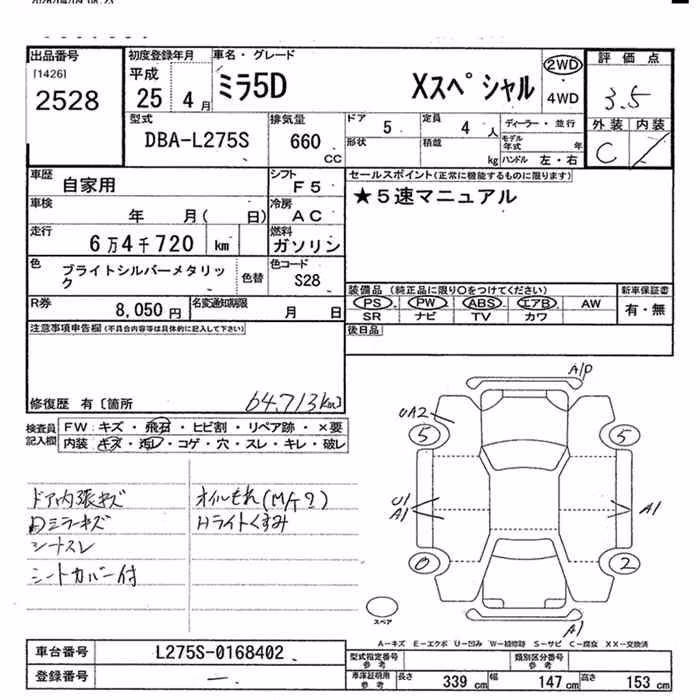 出品番号
[1426]
2528
初度登録年月
平成
25 4 月
車名・グレード
ミラ5D Xスペシャル
2WD
4WD
評価点
3.5
外装 内装
C
型式
DBA-L275S
排気量
660
CC
ドア 5
定員 4 人
ディーラー・並行
形状
積載 kg
モデル年式 年
ハンドル 左・右
車歴
自家用
シフト
F5
セールスポイント(正常に機能するものに限ります)
★5速マニュアル
車検
年 月( 日)
冷房
AC
走行
6万4千720 km
燃料
ガソリン
色
ブライトシルバーメタリック
色替
色コード
S28
装備品 (純正品に限り〇をつけてください)
新車保証書
PS PW ABS エアB AW
有・無
SR ナビ TV カワ
R券
8,050 円
名変通知期限
月 日
後日品
注意事項申告欄(不具合内容等は具体的に記入して下さい)
修復歴 有〔箇所
64,713km〕
検査員記入欄
FW: キズ・飛石・ヒビ割・リペア跡・×要
内装: キズ・汚レ・コゲ・穴・スレ・キレ・破レ
ドア内張キズ
ミラーキズ
シートスレ
シートカバー付
オイルもれ
Hライトくすみ
A/P
UA2
5
5
U1
A1
A1
0
2
A1
スペア
A-キズ E-エクボ U-凹み W-補修跡 S-サビ C-腐食 XX-交換済
車台番号
L275S-0168402
登録番号
—
型式指定番号
参考
類別区分番号
参考
車庫証明用
参考
長さ 339 cm
幅 147 cm
高さ 153 cm